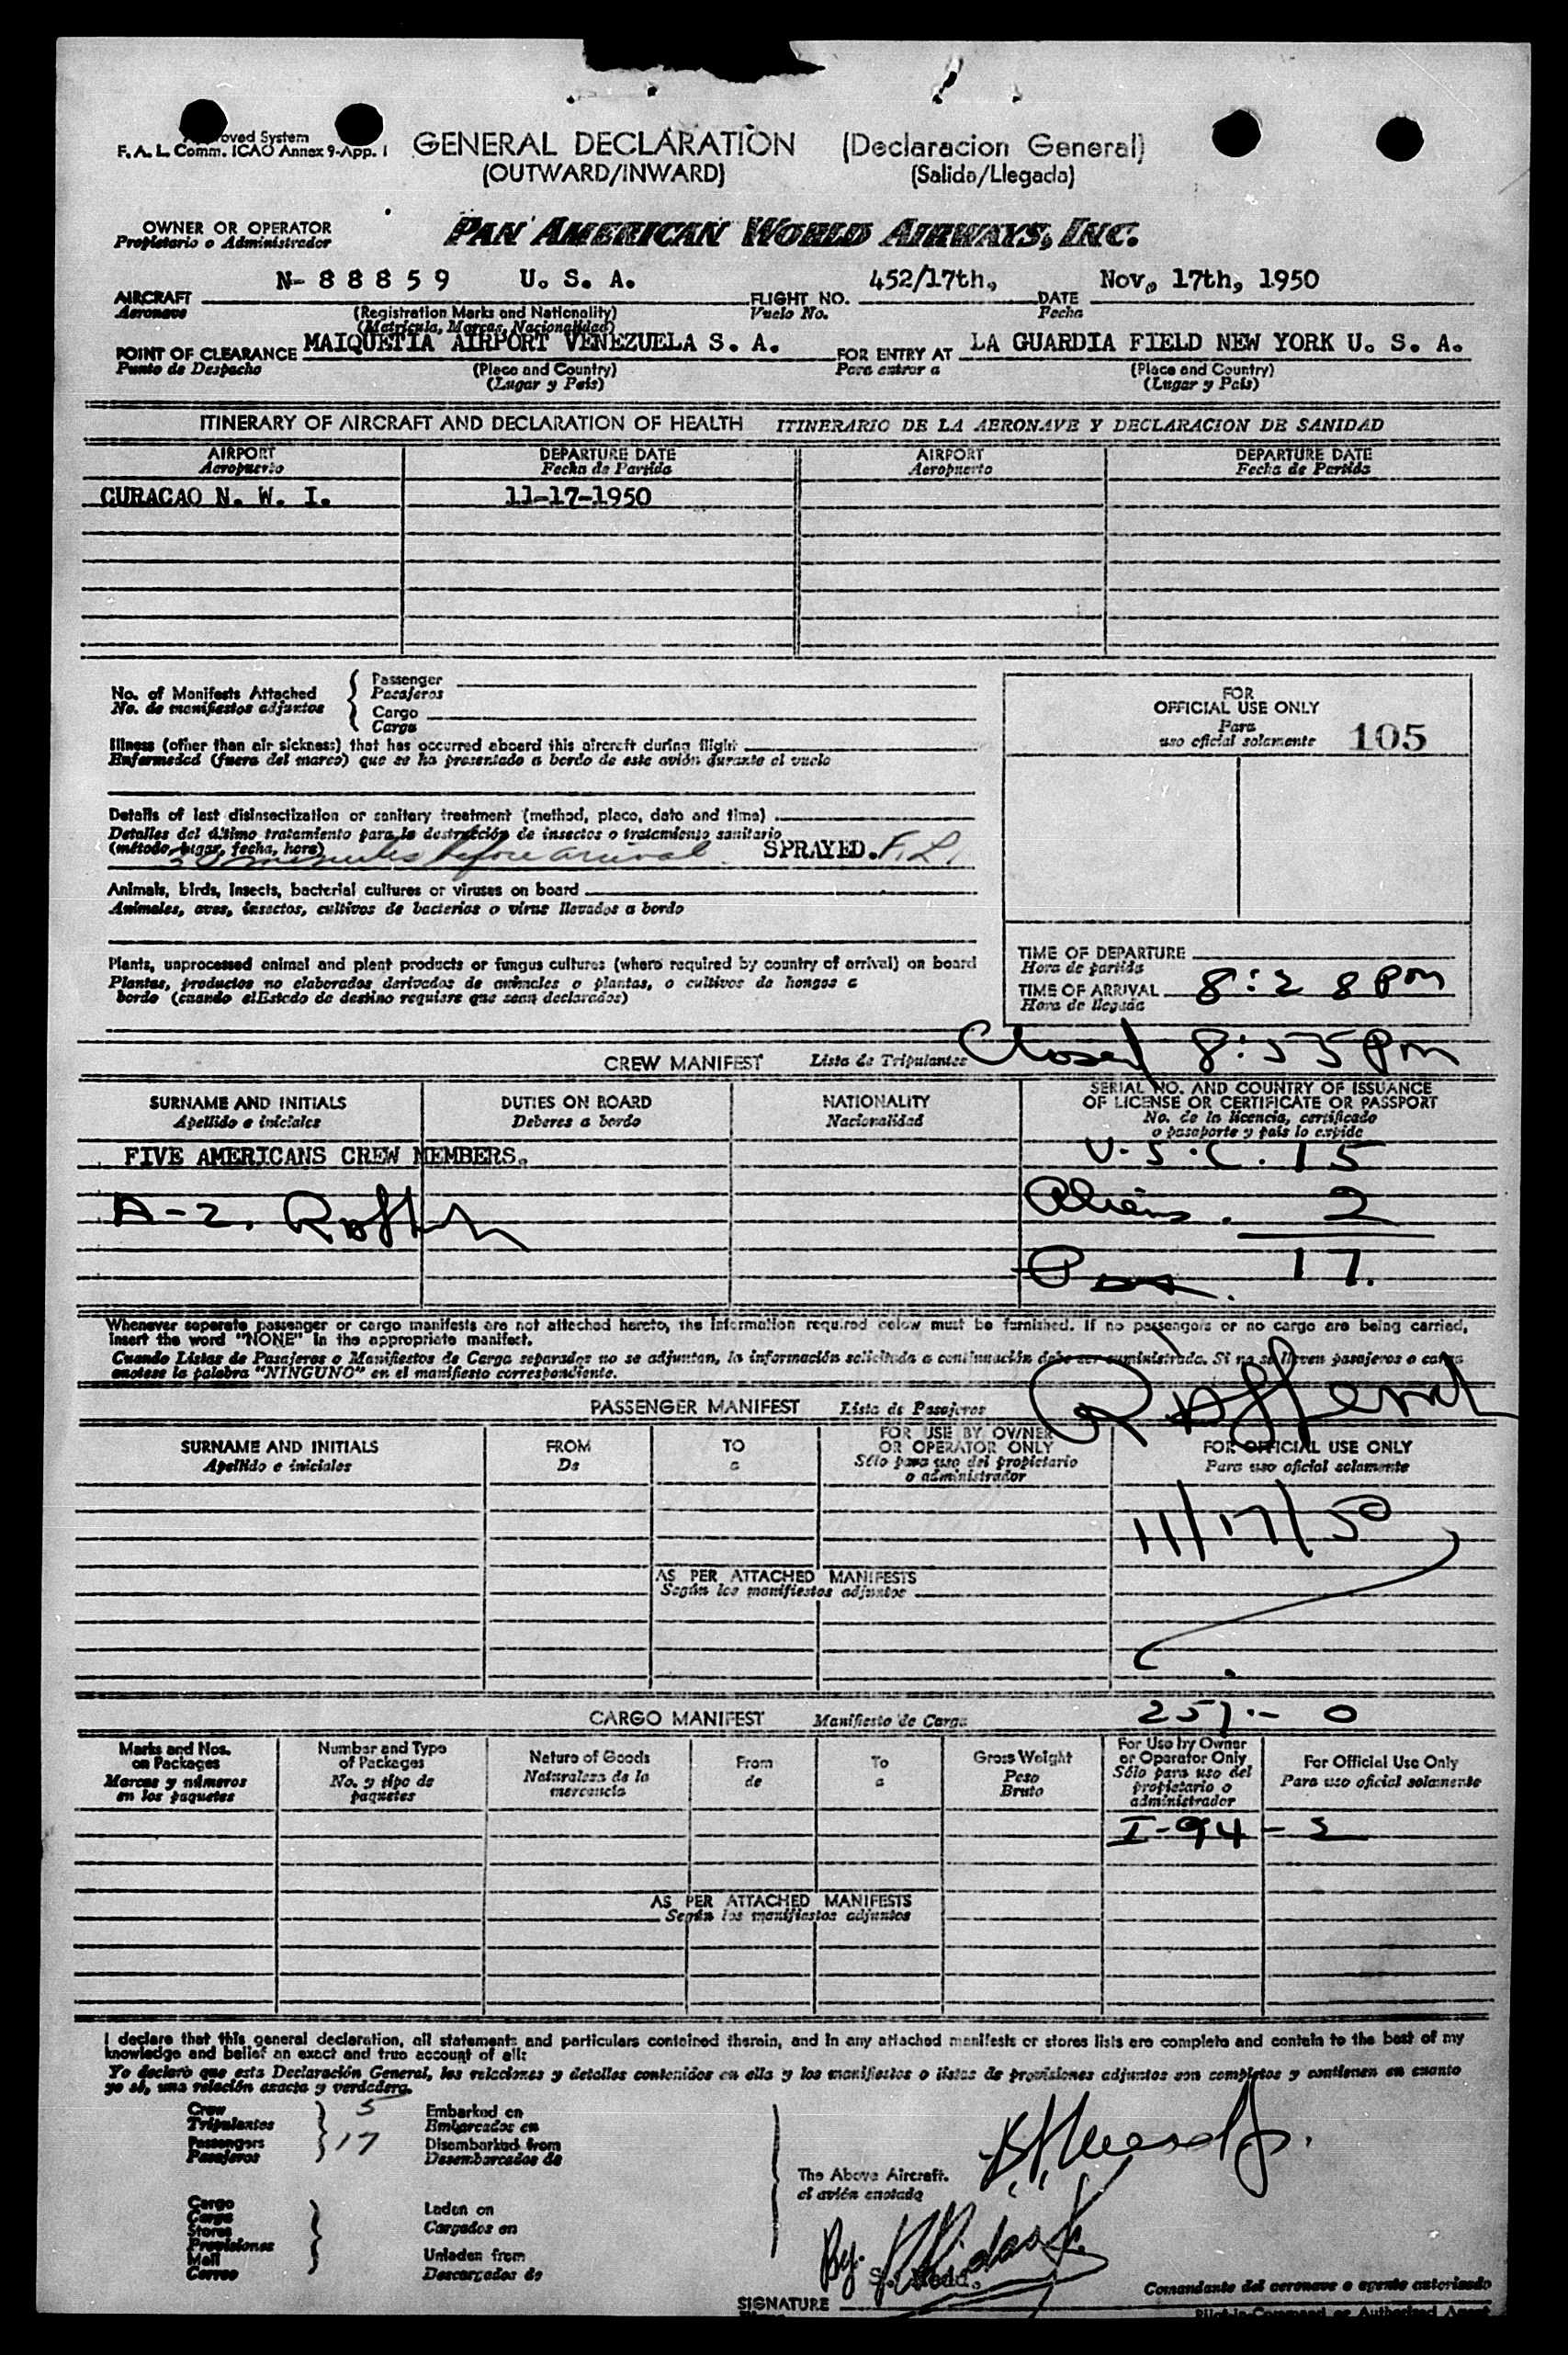 roved System
F. A. L. Comm. ICAO Annex 9-App. 1
GENERAL DECLARATION (Declaracion General)
(OUTWARD/INWARD) (Salida/Llegada)
OWNER OR OPERATOR
Propietario o Administrador
PAN AMERICAN WORLD AIRWAYS, INC.
N- 8 8 8 5 9 U. S. A. 452/17th, Nov. 17th, 1950
AIRCRAFT FLIGHT NO. DATE
Aeronave (Registration Marks and Nationality) Vuelo No. Fecha
(Matricula, Marcas, Nacionalidad)
POINT OF CLEARANCE MAIQUETIA AIRPORT VENEZUELA S. A. FOR ENTRY AT LA GUARDIA FIELD NEW YORK U. S. A.
Punto de Despacho (Place and Country) Para entrar a (Place and Country)
(Lugar y País) (Lugar y País)
ITINERARY OF AIRCRAFT AND DECLARATION OF HEALTH ITINERARIO DE LA AERONAVE Y DECLARACION DE SANIDAD
AIRPORT DEPARTURE DATE AIRPORT DEPARTURE DATE
Aeropuerto Fecha de Partida Aeropuerto Fecha de Partida
CURACAO N. W. I. 11-17-1950
No. of Manifests Attached
No. de manifiestos adjuntos
Passenger
Pasajeros
Cargo
Carga
FOR
OFFICIAL USE ONLY
Para
uso oficial solamente 105
Illness (other than air sickness) that has occurred aboard this aircraft during flight
Enfermedad (fuera del mareo) que se ha presentado a bordo de este avión durante el vuelo
Details of last disinsectization or sanitary treatment (method, place, date and time)
Detalles del último tratamiento para la destrucción de insectos o tratamiento sanitario
(método, lugar, fecha, hora)
30 minutes before arrival. SPRAYED. F.L.
Animals, birds, insects, bacterial cultures or viruses on board
Animales, aves, insectos, cultivos de bacterias o virus llevados a bordo
Plants, unprocessed animal and plant products or fungus cultures (where required by country of arrival) on board
Plantas, productos no elaborados derivados de animales o plantas, o cultivos de hongos a
bordo (cuando el Estado de destino requiere que sean declarados)
TIME OF DEPARTURE
Hora de partida
TIME OF ARRIVAL 8:28 pm
Hora de llegada
Closed 8:55 pm
CREW MANIFEST Lista de Tripulantes
SURNAME AND INITIALS DUTIES ON BOARD NATIONALITY SERIAL NO. AND COUNTRY OF ISSUANCE
OF LICENSE OR CERTIFICATE OR PASSPORT
Apellido e iniciales Deberes a bordo Nacionalidad No. de la licencia, certificado
o pasaporte y país lo expide
FIVE AMERICANS CREW MEMBERS. U.S.C. 15
A-2. Aliens. 2
Pax. 17.
Whenever separate passenger or cargo manifests are not attached hereto, the information required below must be furnished. If no passengers or no cargo are being carried,
insert the word "NONE" in the appropriate manifest.
Cuando Listas de Pasajeros o Manifiestos de Carga separados no se adjuntan, la información solicitada a continuación debe ser suministrada. Si no se lleven pasajeros o carga
anotese la palabra "NINGUNO" en el manifiesto correspondiente.
PASSENGER MANIFEST Lista de Pasajeros
SURNAME AND INITIALS FROM TO FOR USE BY OWNER
OR OPERATOR ONLY FOR OFFICIAL USE ONLY
Apellido e iniciales De a Sólo para uso del propietario
o administrador Para uso oficial solamente
11/17/50
AS PER ATTACHED MANIFESTS
Según los manifiestos adjuntos
257.- 0
CARGO MANIFEST Manifiesto de Carga
Marks and Nos.
on Packages
Marcas y números
en los paquetes
Number and Type
of Packages
No. y tipo de
paquetes
Nature of Goods
Naturaleza de la
mercancia
From
de
To
a
Gross Weight
Peso
Bruto
For Use by Owner
or Operator Only
Sólo para uso del
propietario o
administrador
For Official Use Only
Para uso oficial solamente
I-94 - 2
AS PER ATTACHED MANIFESTS
Según los manifiestos adjuntos
I declare that this general declaration, all statements and particulars contained therein, and in any attached manifests or stores lists are complete and contain to the best of my
knowledge and belief an exact and true account of all:
Yo declaro que esta Declaración General, las relaciones y detalles contenidos en ella y los manifiestos o listas de provisiones adjuntos son completos y contienen en cuanto
yo sé, una relación exacta y verdadera.
Crew 5 Embarked on
Tripulantes Embarcados en
Passengers 17 Disembarked from
Pasajeros Desembarcados de
The Above Aircraft.
el avión anotado
Cargo
Carga
Stores
Provisiones
Mail
Correo
Laden on
Cargados en
Unladen from
Descargados de
By.
SIGNATURE
Comandante del aeronave o agente autorizado
Pilot-in-Command or Authorized Agent